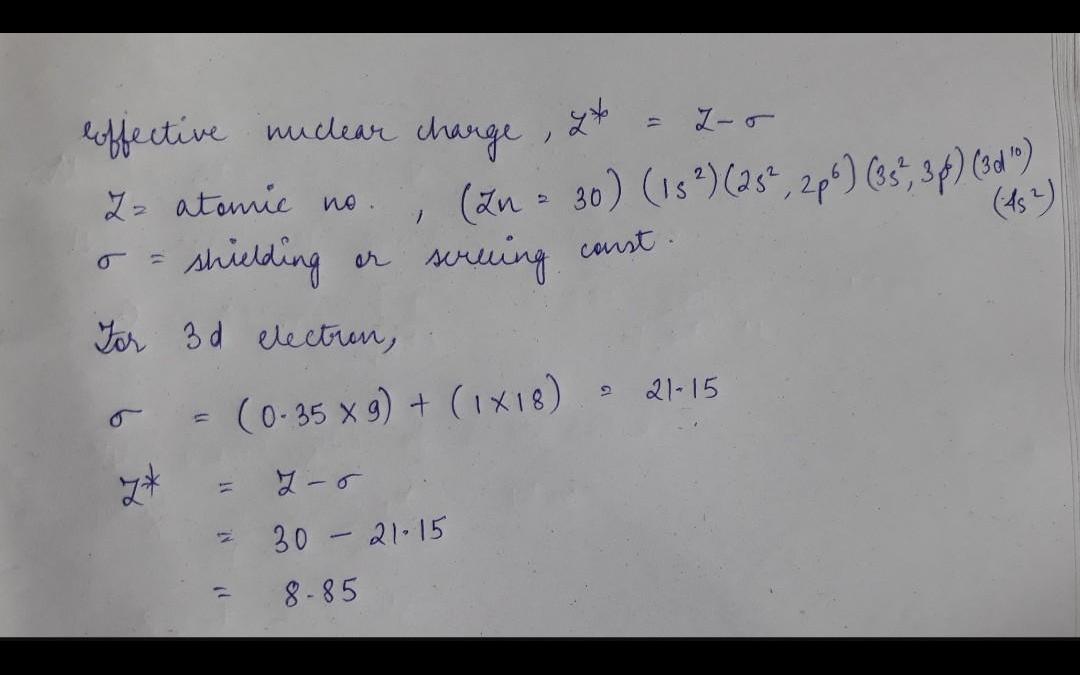 Effective nuclear charge, Z* = Z-σ
Z = atomic no. , (Zn = 30) (1s²)(2s², 2p⁶)(3s², 3p⁶)(3d¹⁰)
(4s²)
σ = shielding or screeing const.
For 3d electron,
σ = (0.35 X 9) + (1X18) = 21.15
Z* = Z-σ
= 30 - 21.15
= 8.85